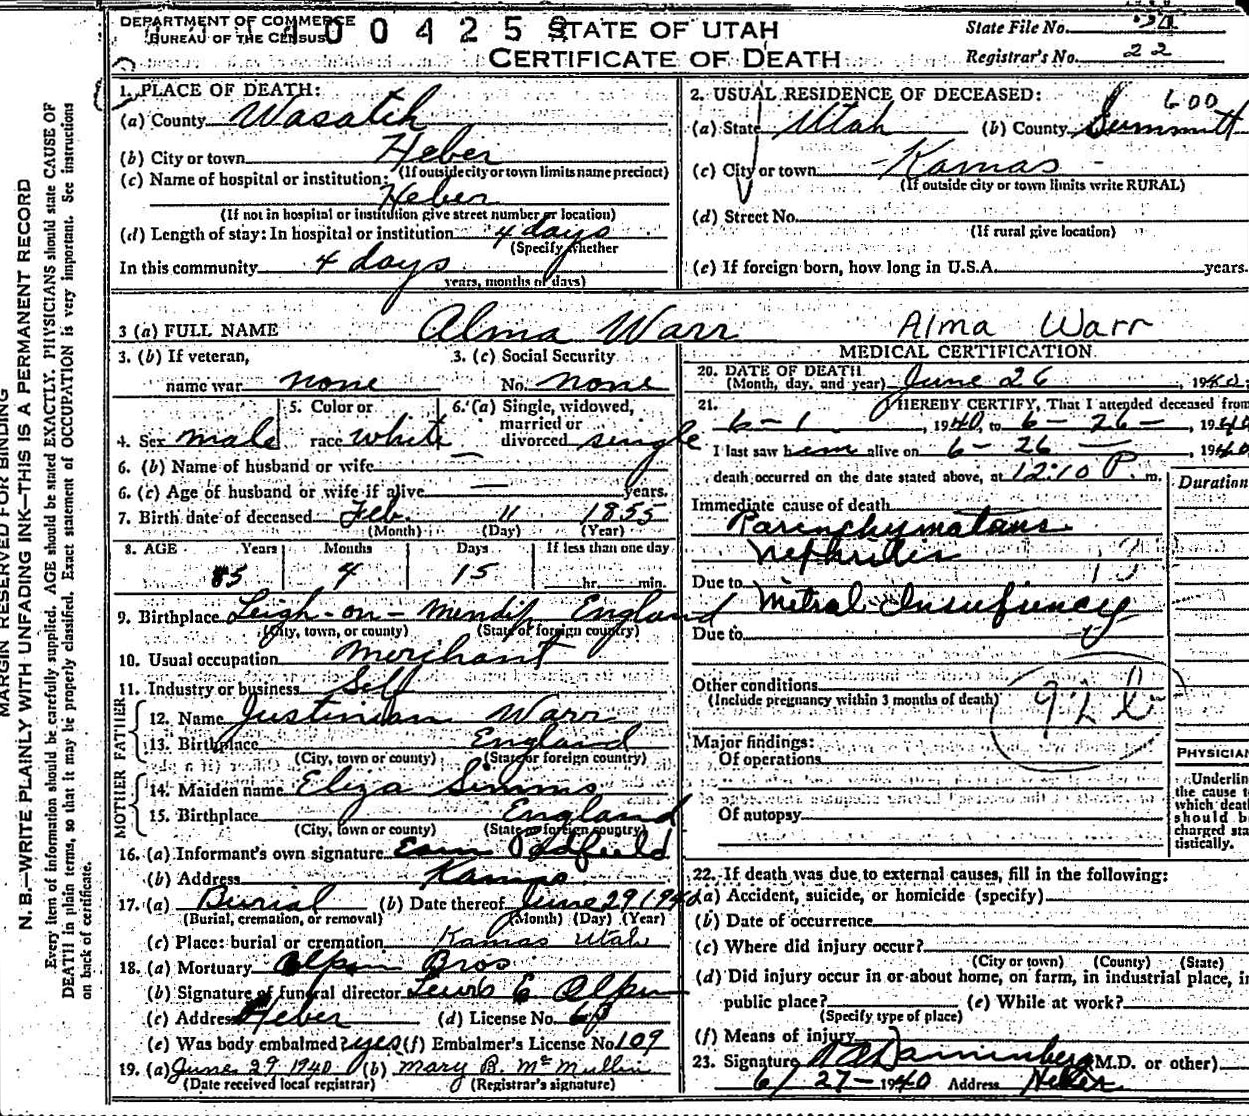 DEPARTMENT OF COMMERCE
BUREAU OF THE CENSUS
0 0 4 2 5
STATE OF UTAH
CERTIFICATE OF DEATH
State File No.
Registrar's No. 22
MARGIN RESERVED FOR BINDING
N. B.—WRITE PLAINLY WITH UNFADING INK—THIS IS A PERMANENT RECORD
Every item of information should be carefully supplied. AGE should be stated EXACTLY. PHYSICIANS should state CAUSE OF
DEATH in plain terms, so that it may be properly classified. Exact statement of OCCUPATION is very important. See instructions
on back of certificate.
1. PLACE OF DEATH:
(a) County Wasatch
(b) City or town Heber
(If outside city or town limits name precinct)
(c) Name of hospital or institution:
Heber
(If not in hospital or institution give street number or location)
(d) Length of stay: In hospital or institution 4 days
(Specify whether
In this community 4 days
years, months or days)
2. USUAL RESIDENCE OF DECEASED: 600
(a) State Utah (b) County Summitt
(c) City or town - Kamas -
(If outside city or town limits write RURAL)
(d) Street No.
(If rural give location)
(e) If foreign born, how long in U.S.A. years.
3 (a) FULL NAME Alma Warr Alma Warr
3. (b) If veteran, 3. (c) Social Security
name war none No. none
4. Sex male 5. Color or race white 6. (a) Single, widowed, married or divorced single
6. (b) Name of husband or wife —
6. (c) Age of husband or wife if alive — years.
7. Birth date of deceased Feb. 11 1855
(Month) (Day) (Year)
8. AGE Years Months Days If less than one day
85 4 15 hr. min.
9. Birthplace Leigh-on-Mendip England
(City, town, or county) (State or foreign country)
10. Usual occupation Merchant
11. Industry or business Self
FATHER
12. Name Justinian Warr
13. Birthplace England
(City, town or county) (State or foreign country)
MOTHER
14. Maiden name Eliza Simms
15. Birthplace England
(City, town or county) (State or foreign country)
16. (a) Informant's own signature Padfield
(b) Address Kamas
17. (a) Burial (b) Date thereof June 29 1940
(Burial, cremation, or removal) (Month) (Day) (Year)
(c) Place: burial or cremation Kamas Utah
18. (a) Mortuary Olpin Bros
(b) Signature of funeral director Lewis E Olpin
(c) Address Heber (d) License No.
(e) Was body embalmed? yes (f) Embalmer's License No. 109
19. (a) June 29 1940 (b) Mary B. McMullin
(Date received local registrar) (Registrar's signature)
MEDICAL CERTIFICATION
20. DATE OF DEATH
(Month, day, and year) June 26, 1940
21. I HEREBY CERTIFY, That I attended deceased from
6-1, 1940, to 6-26-, 1940
I last saw him alive on 6-26, 1940
death occurred on the date stated above, at 12:10 P. m.
Duration
Immediate cause of death
Parenchymatous
Nephritis
Due to Mitral Insufiency
Due to
Other conditions
(Include pregnancy within 3 months of death)
92 b
Major findings:
Of operations
Of autopsy
PHYSICIAN
Underlin
the cause t
which deat
should b
charged sta
tistically.
22. If death was due to external causes, fill in the following:
(a) Accident, suicide, or homicide (specify)
(b) Date of occurrence
(c) Where did injury occur?
(City or town) (County) (State)
(d) Did injury occur in or about home, on farm, in industrial place, in
public place? (e) While at work?
(Specify type of place)
(f) Means of injury
23. Signature Dannenberg (M.D. or other)
6/27-1940 Address Heber